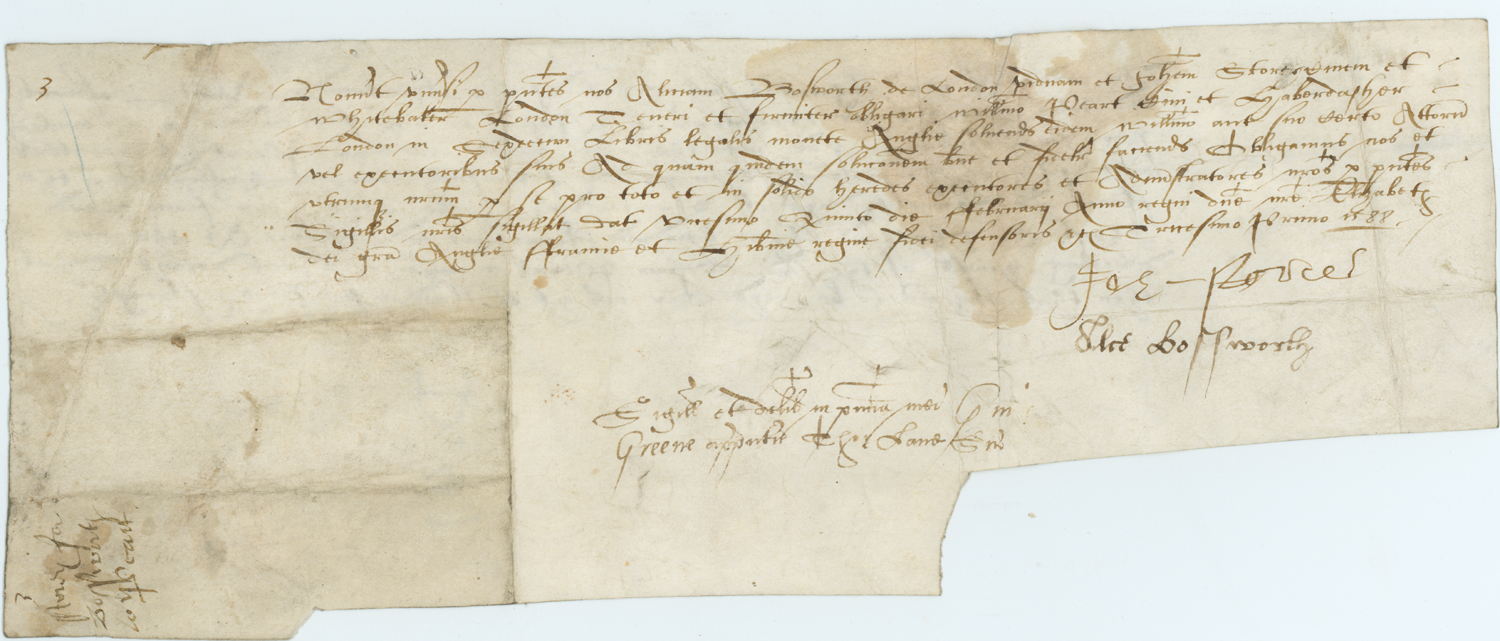 3
Nov&#39;int univ&#39;si p p&#39;ntes nos Aliciam Bosworth de London viduam et Joh&#39;em Storer Civem et
Whitebaker London Teneri et firmiter obligari Will&#39;mo Peart Civi et Haberdasher
London in libris legalis monete Anglie solvend eidem Will&#39;mo aut suo certo Attorn
vel executoribus suis Ad quam quidem soluc&#39;onem b&#39;ne et fidelr faciend Obligamus nos et
utrumq n&#39;rum p se pro toto et in solido heredes executores et Administratores n&#39;ros p p&#39;ntes
Sigillis n&#39;ris sigillat dat vicesimo Quinto die ffebruarij Anno regni d&#39;ne n&#39;re Elizabeth
dei gra&#39; Anglie ffrancie et Hib&#39;nie regine fidei defensoris &amp;c Tricesimo Primo 1588
Joh Storer
Alce Bosworth
Sigill et delib in p&#39;ncia mei
Greene apprntic Tho Lane Scr
3
Bosworth
Peart